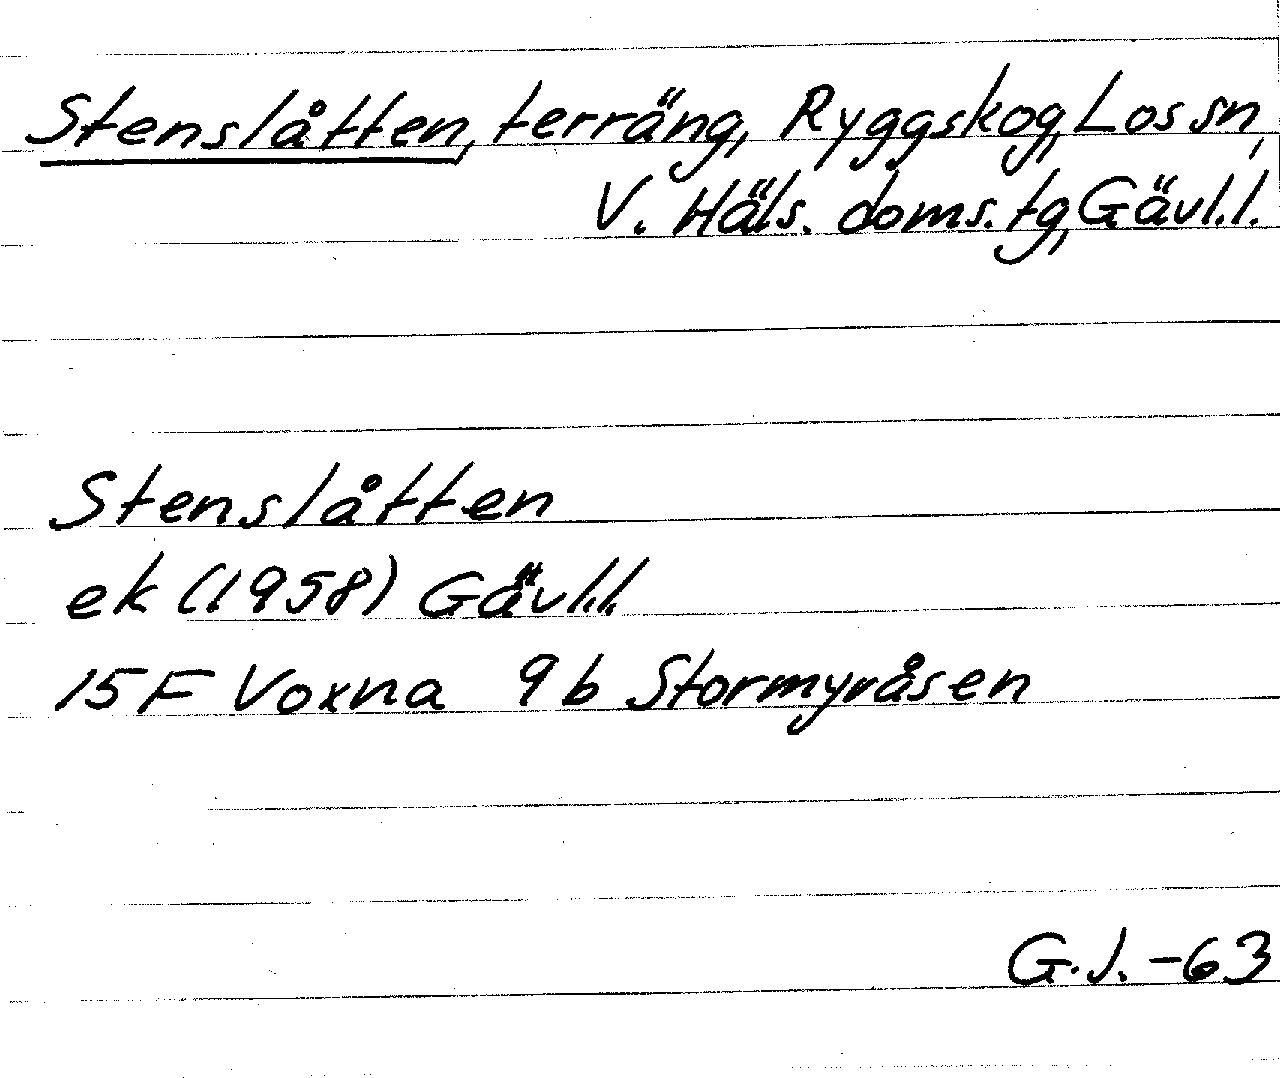 Stenslåtten, terräng, Ryggskog, Los sn,
V. Häls. doms. tg, Gävl.l.
Stenslåtten
ek (1958) Gävl.l.
15F Voxna 9b Stormyråsen
G.J. -63